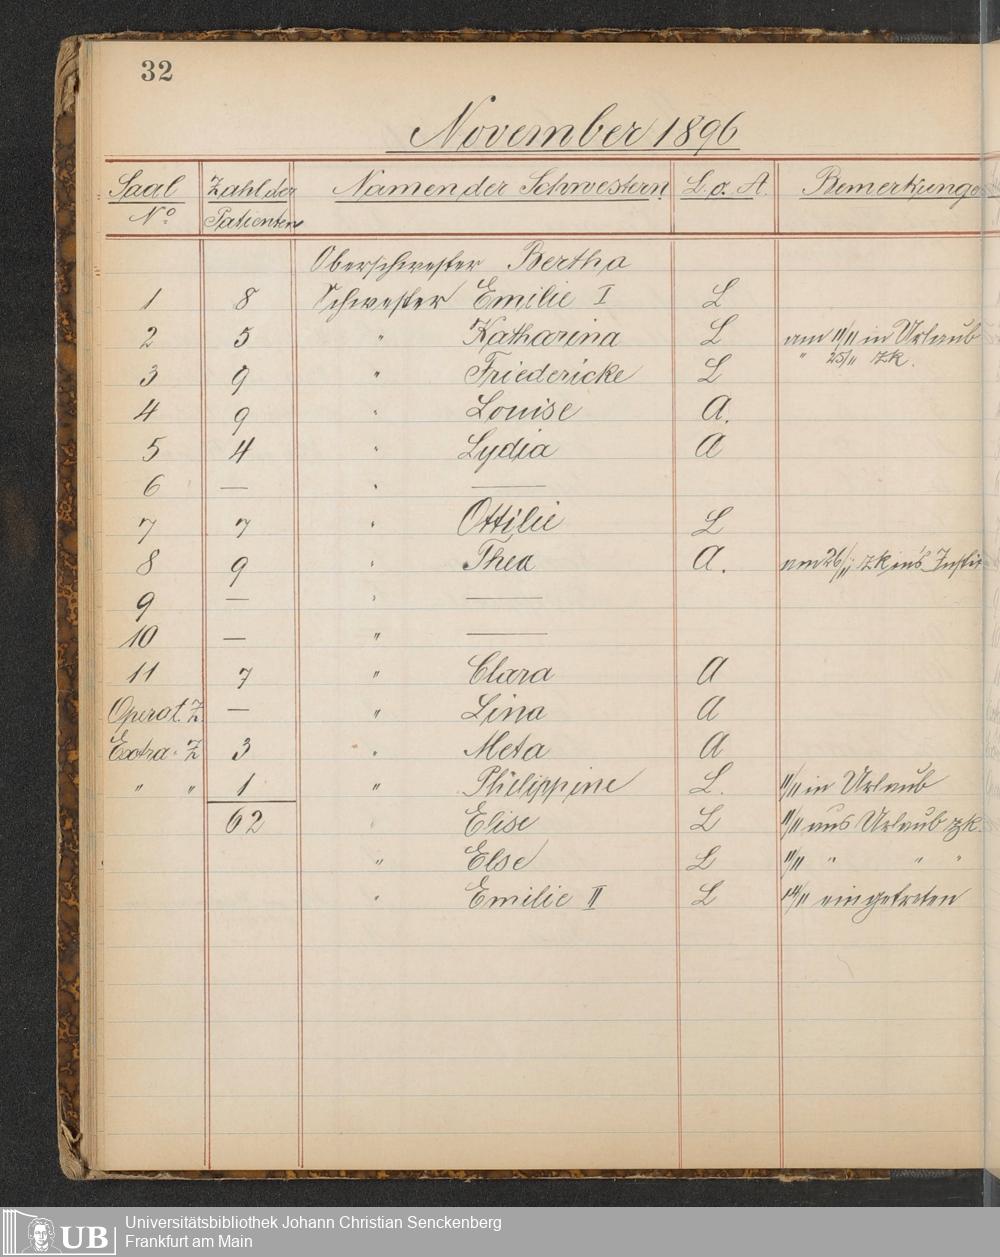 32
November 1896
Saal No Zahl der Patienten Namen der Schwestern L. o. A. Bemerkunge
Oberschwester Bertha
1 8 Schwester Emilie I L
2 5 " Katharina L am 11/11 in Urlaub
" 25/11 zk.
3 9 " Friedericke L
4 9 " Louise A.
5 4 " Lydia A
6 — " —
7 7 " Ottilie L
8 9 " Thea A. am 26/11 zk ins Instit
9 — " —
10 — " —
11 7 " Clara A
Operat. Z. — " Lina A
Extra. Z 3 " Meta A
" " 1 " Philippine L. 11/11 in Urlaub
62 " Elise L 11/11 aus Urlaub zk.
" Else L 11/11 " " "
" Emilie II L 14/11 eingetreten
UB Universitätsbibliothek Johann Christian Senckenberg
Frankfurt am Main